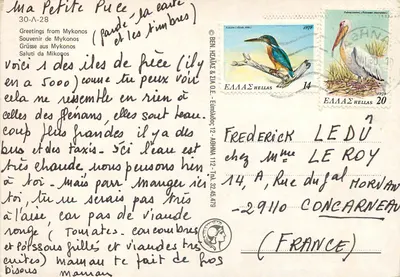 Ma Petite Puce
(garde la carte
et les timbres)
30-Λ-28
Greetings from Mykonos
Souvenir de Mykonos
Grüsse aus Mykonos
Saluti da Mikonos
voici 1 des iles de grèce (il y
en a 5000) comme tu peux voir
cela ne ressemble en rien à
celles des glénans, elles sont beau-
coup plus grandes il y a des
bus et des taxis - Ici l'eau est
très chaude, nous pensons bien
à toi - mais pour manger ici
toi, tu ne serais pas très
à l'aise car pas de viande
rouge (Tomates - concombres
et poissons grillés et viandes très
cuites) maman te fait de gros
bisous
maman
© BEN. ΗΣΑΪΑΣ & ΣΙΑ Ο.Ε. - Εὐπόλιδος 12 - ΑΘΗΝΑΙ 112 - Τηλ. 32.45.479
ΕΛΛΑΣ HELLAS 14
ΕΛΛΑΣ HELLAS 20
FREDERICK LEDÛ
chez Mme LE ROY
14, A, Rue du gal MORVAN
-29110 CONCARNEAU
(FRANCE)